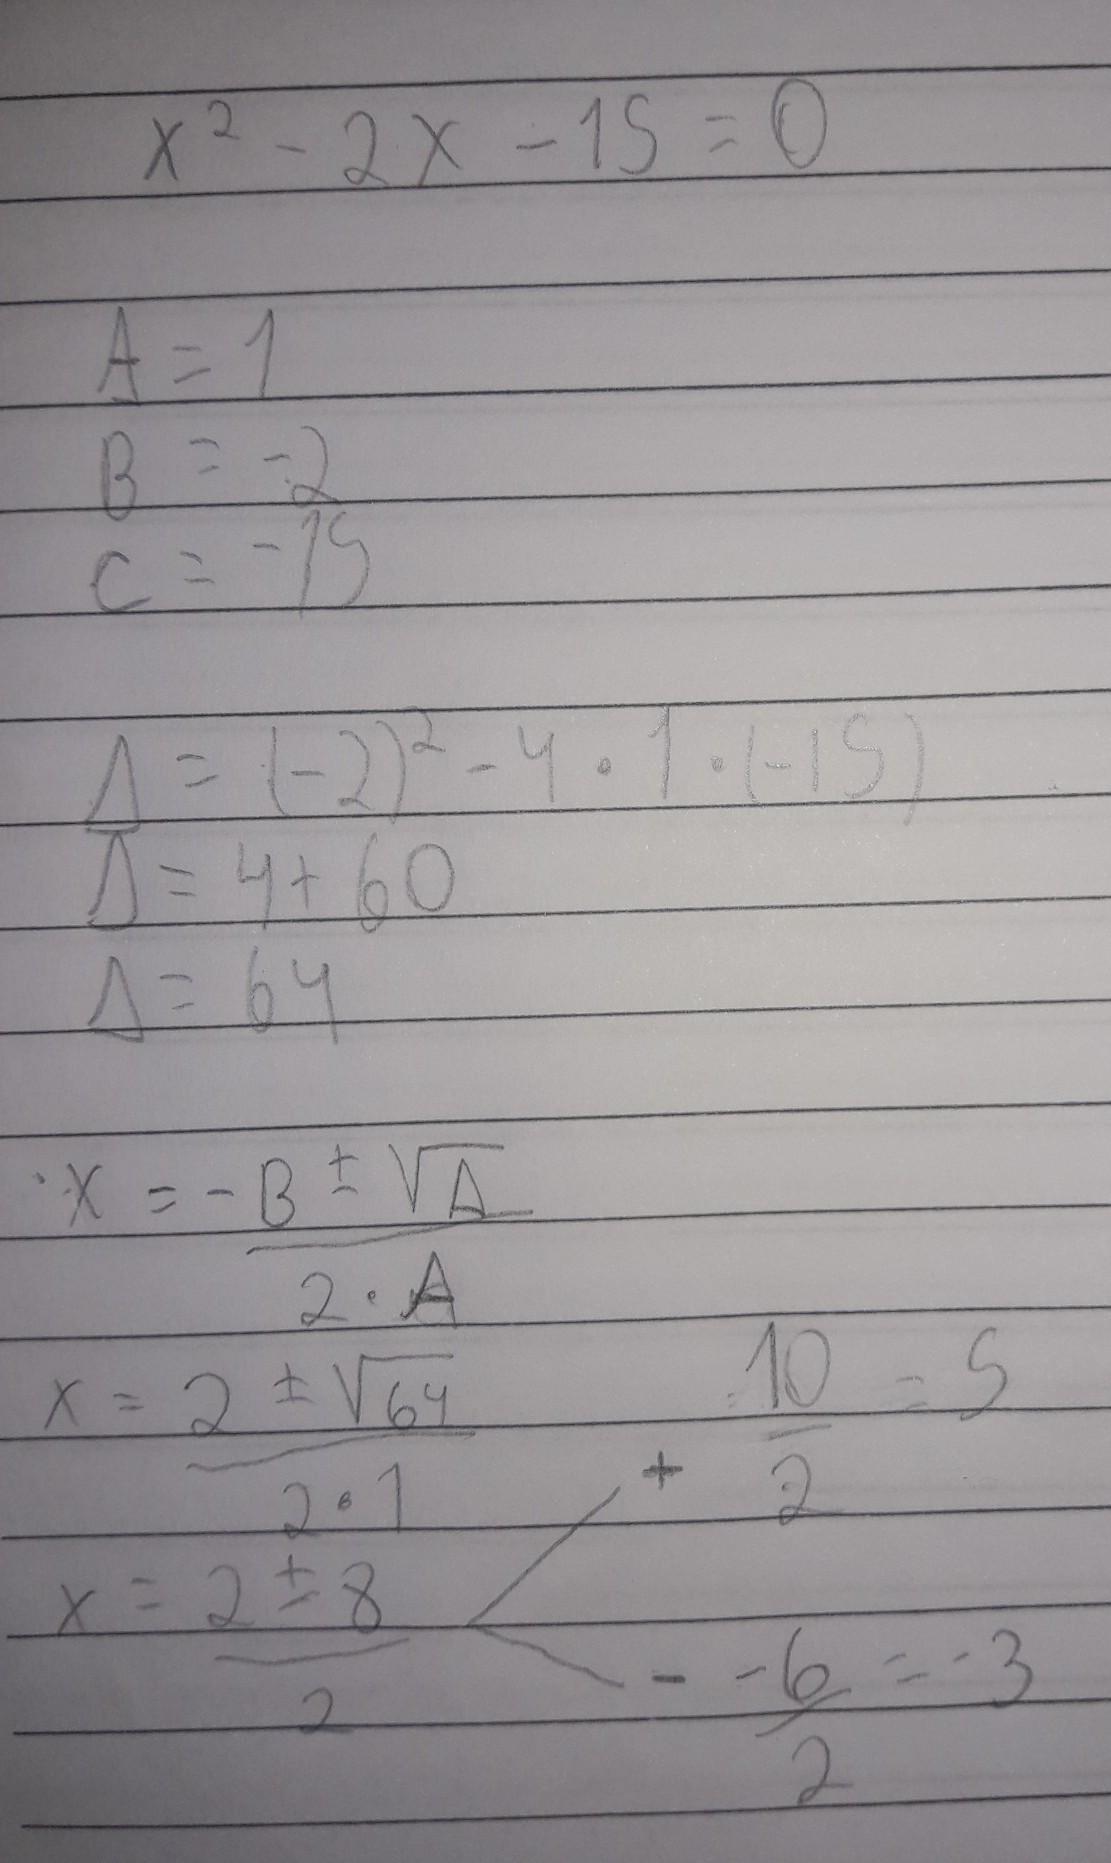 x² - 2x - 15 = 0
A = 1
B = -2
C = -15
Δ = (-2)² - 4 · 1 · (-15)
Δ = 4 + 60
Δ = 64
x = -B ± √Δ
2 · A
x = 2 ± √64
2 · 1
10 = 5
+ 2
x = 2 ± 8
2
- -6 = -3
2